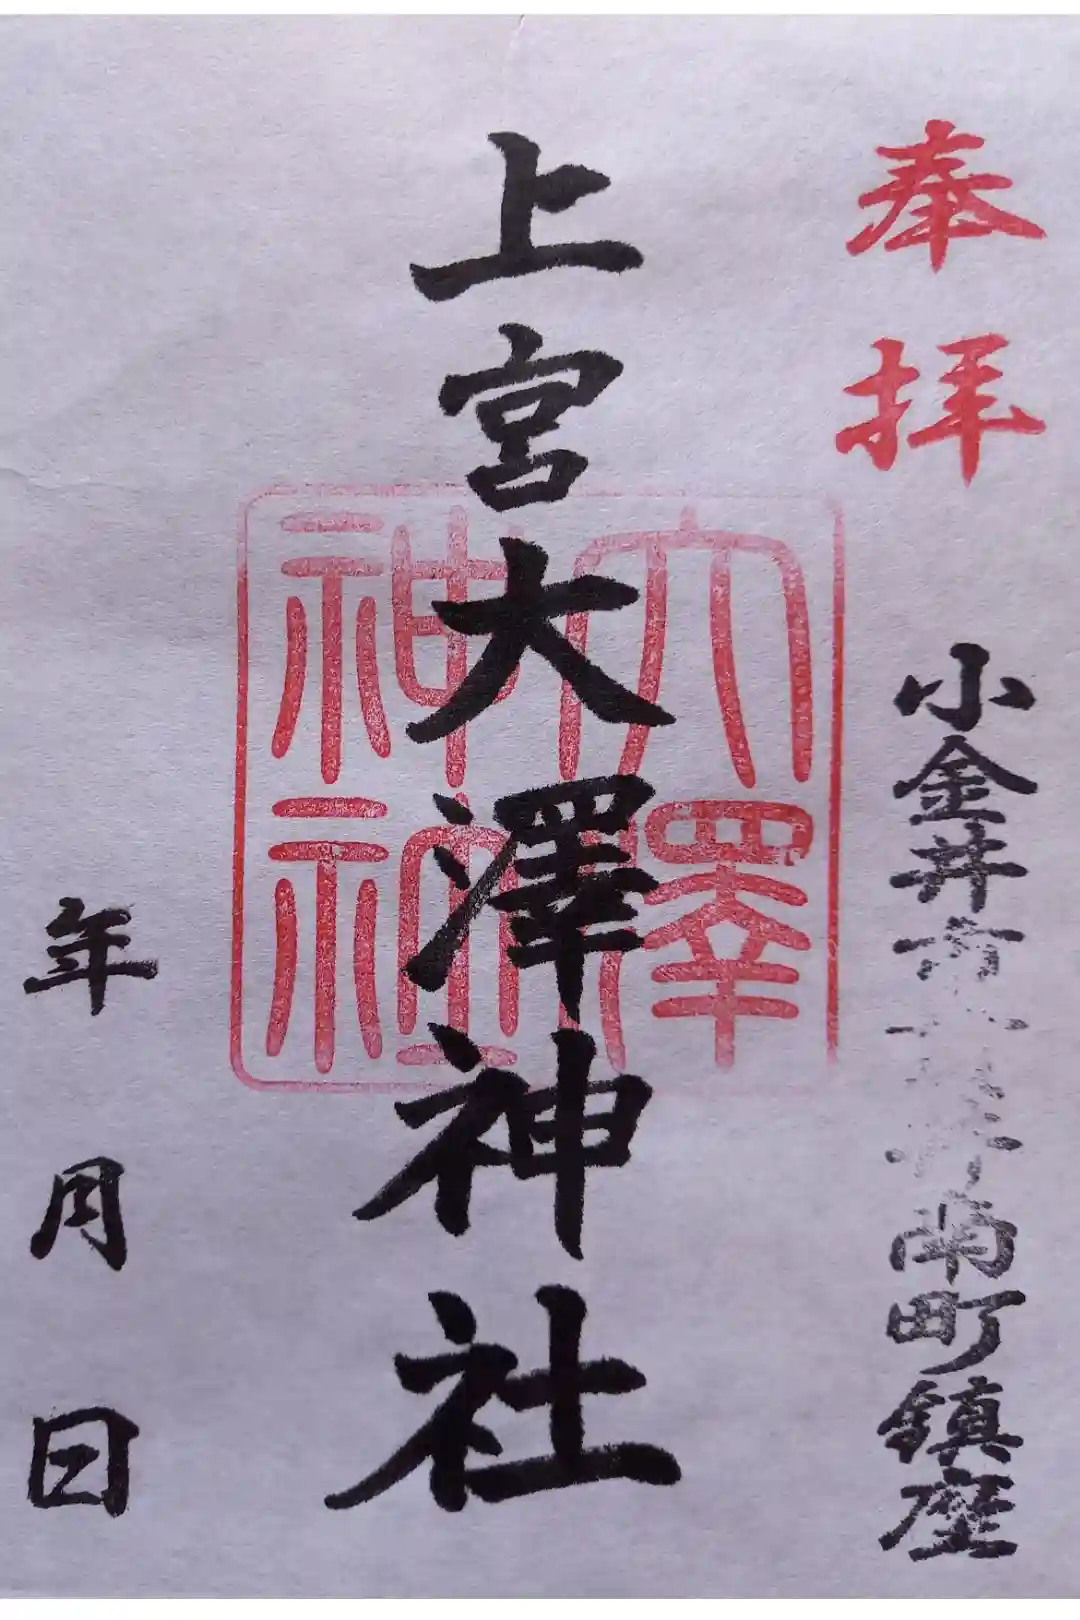 奉拝
小金井市貫井南町鎮座
上宮大澤神社
大澤
神社
年月日